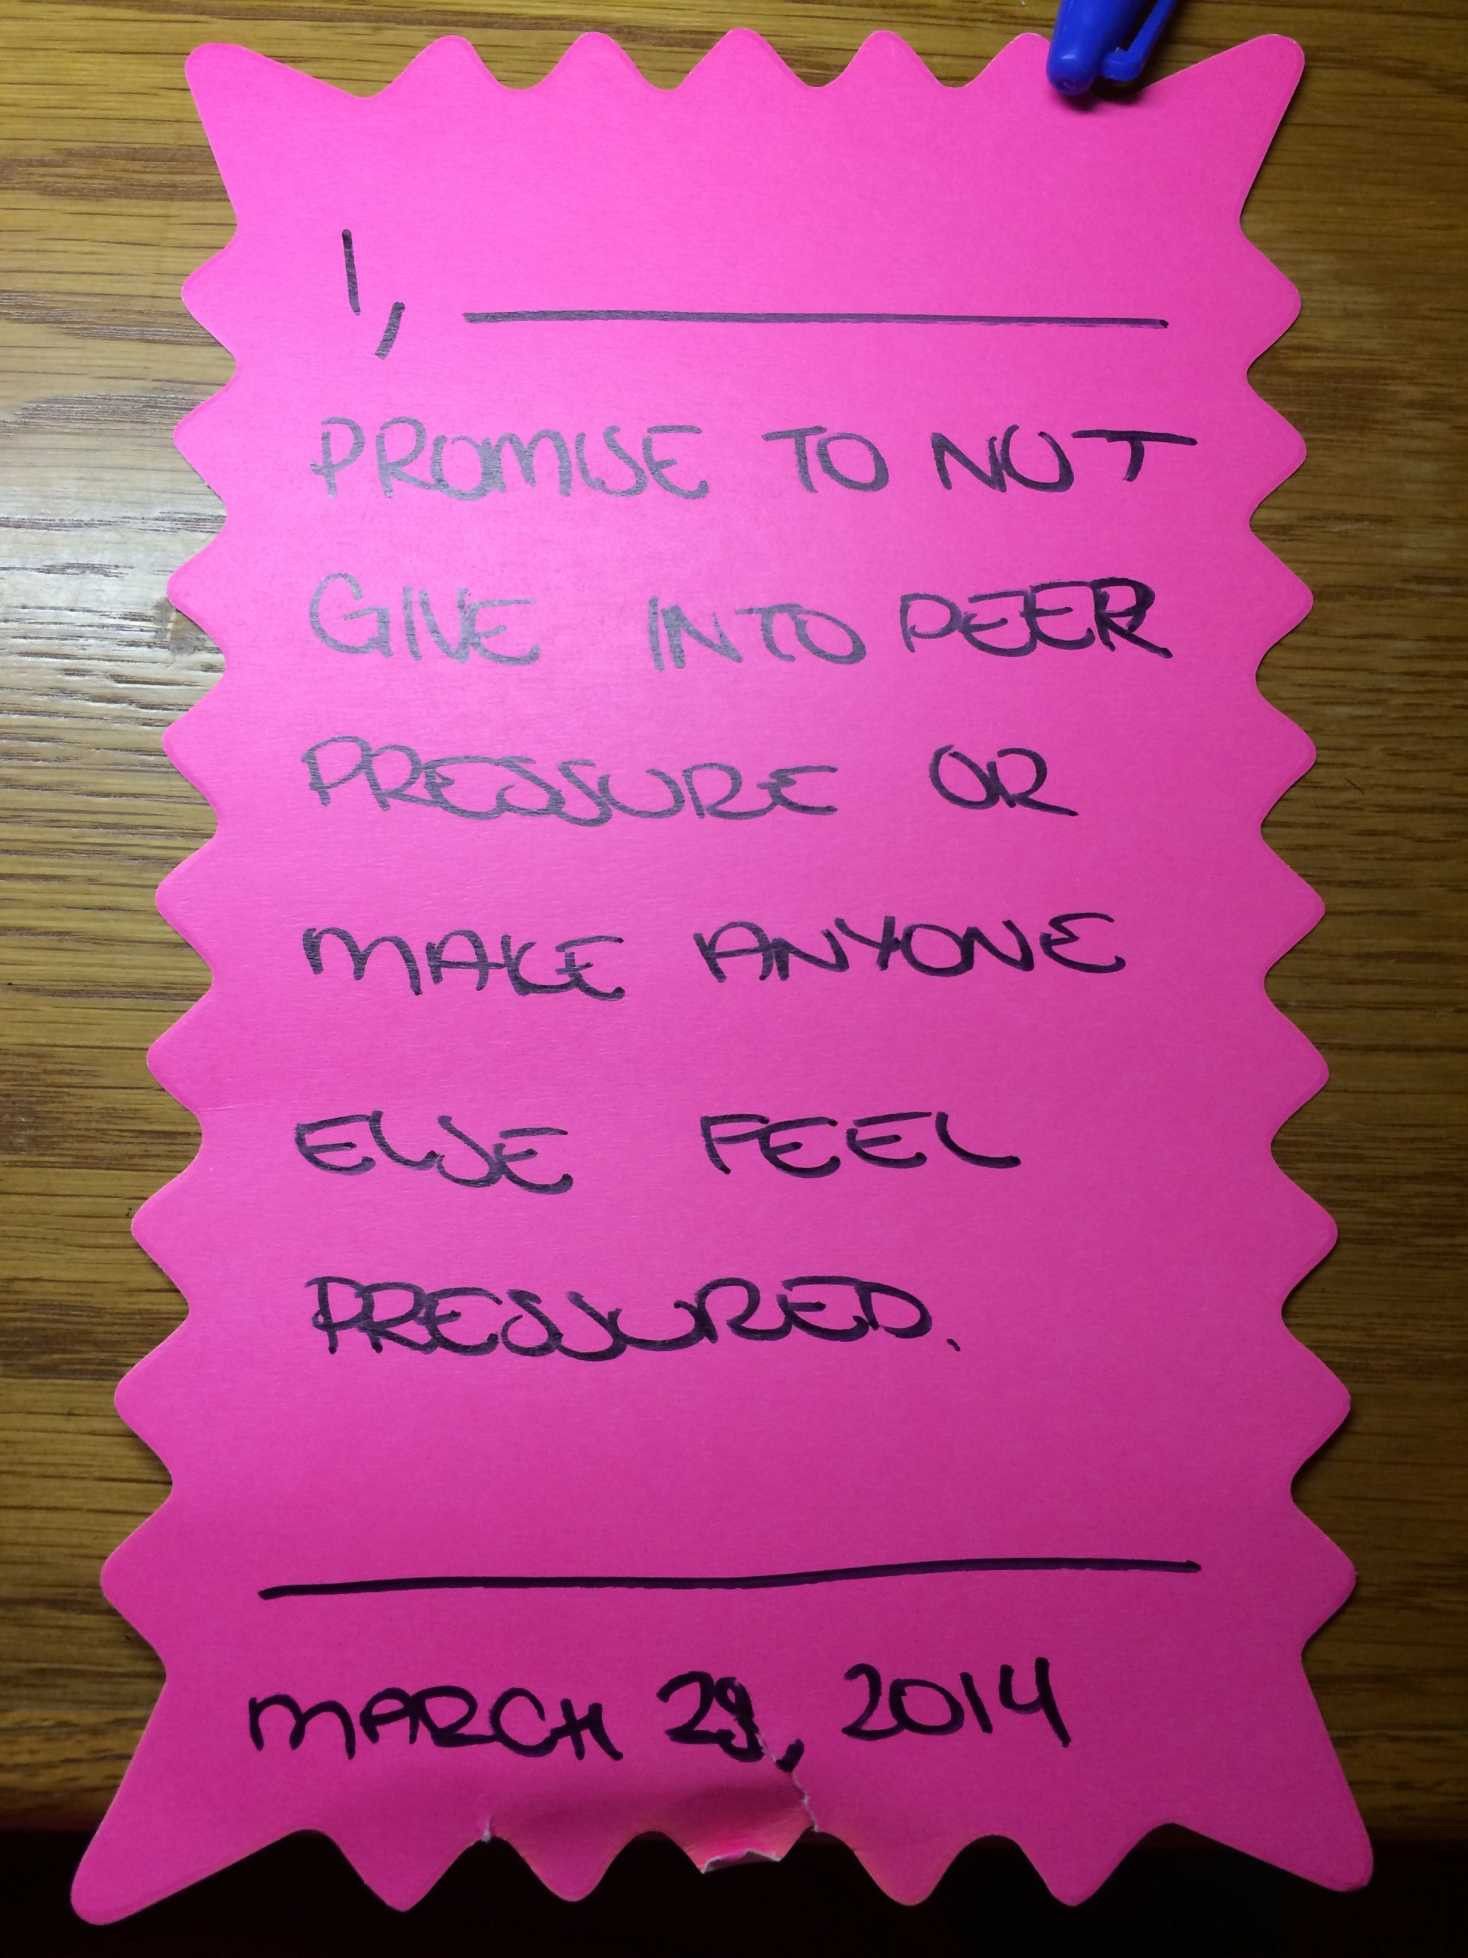 I, ____________
PROMISE TO NOT
GIVE INTO PEER
PRESSURE OR
MAKE ANYONE
ELSE FEEL
PRESSURED.
____________
MARCH 29, 2014